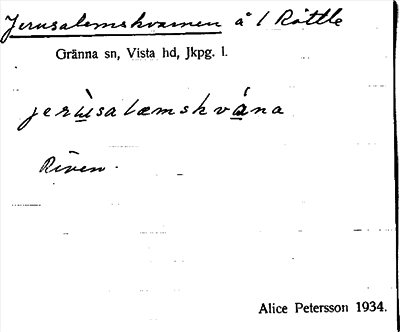 Jerusalemskvarnen å 1 Röttle
Gränna sn, Vista hd, Jkpg. l.
jerùsalæmskvá̱na
Riven.
Alice Petersson 1934.